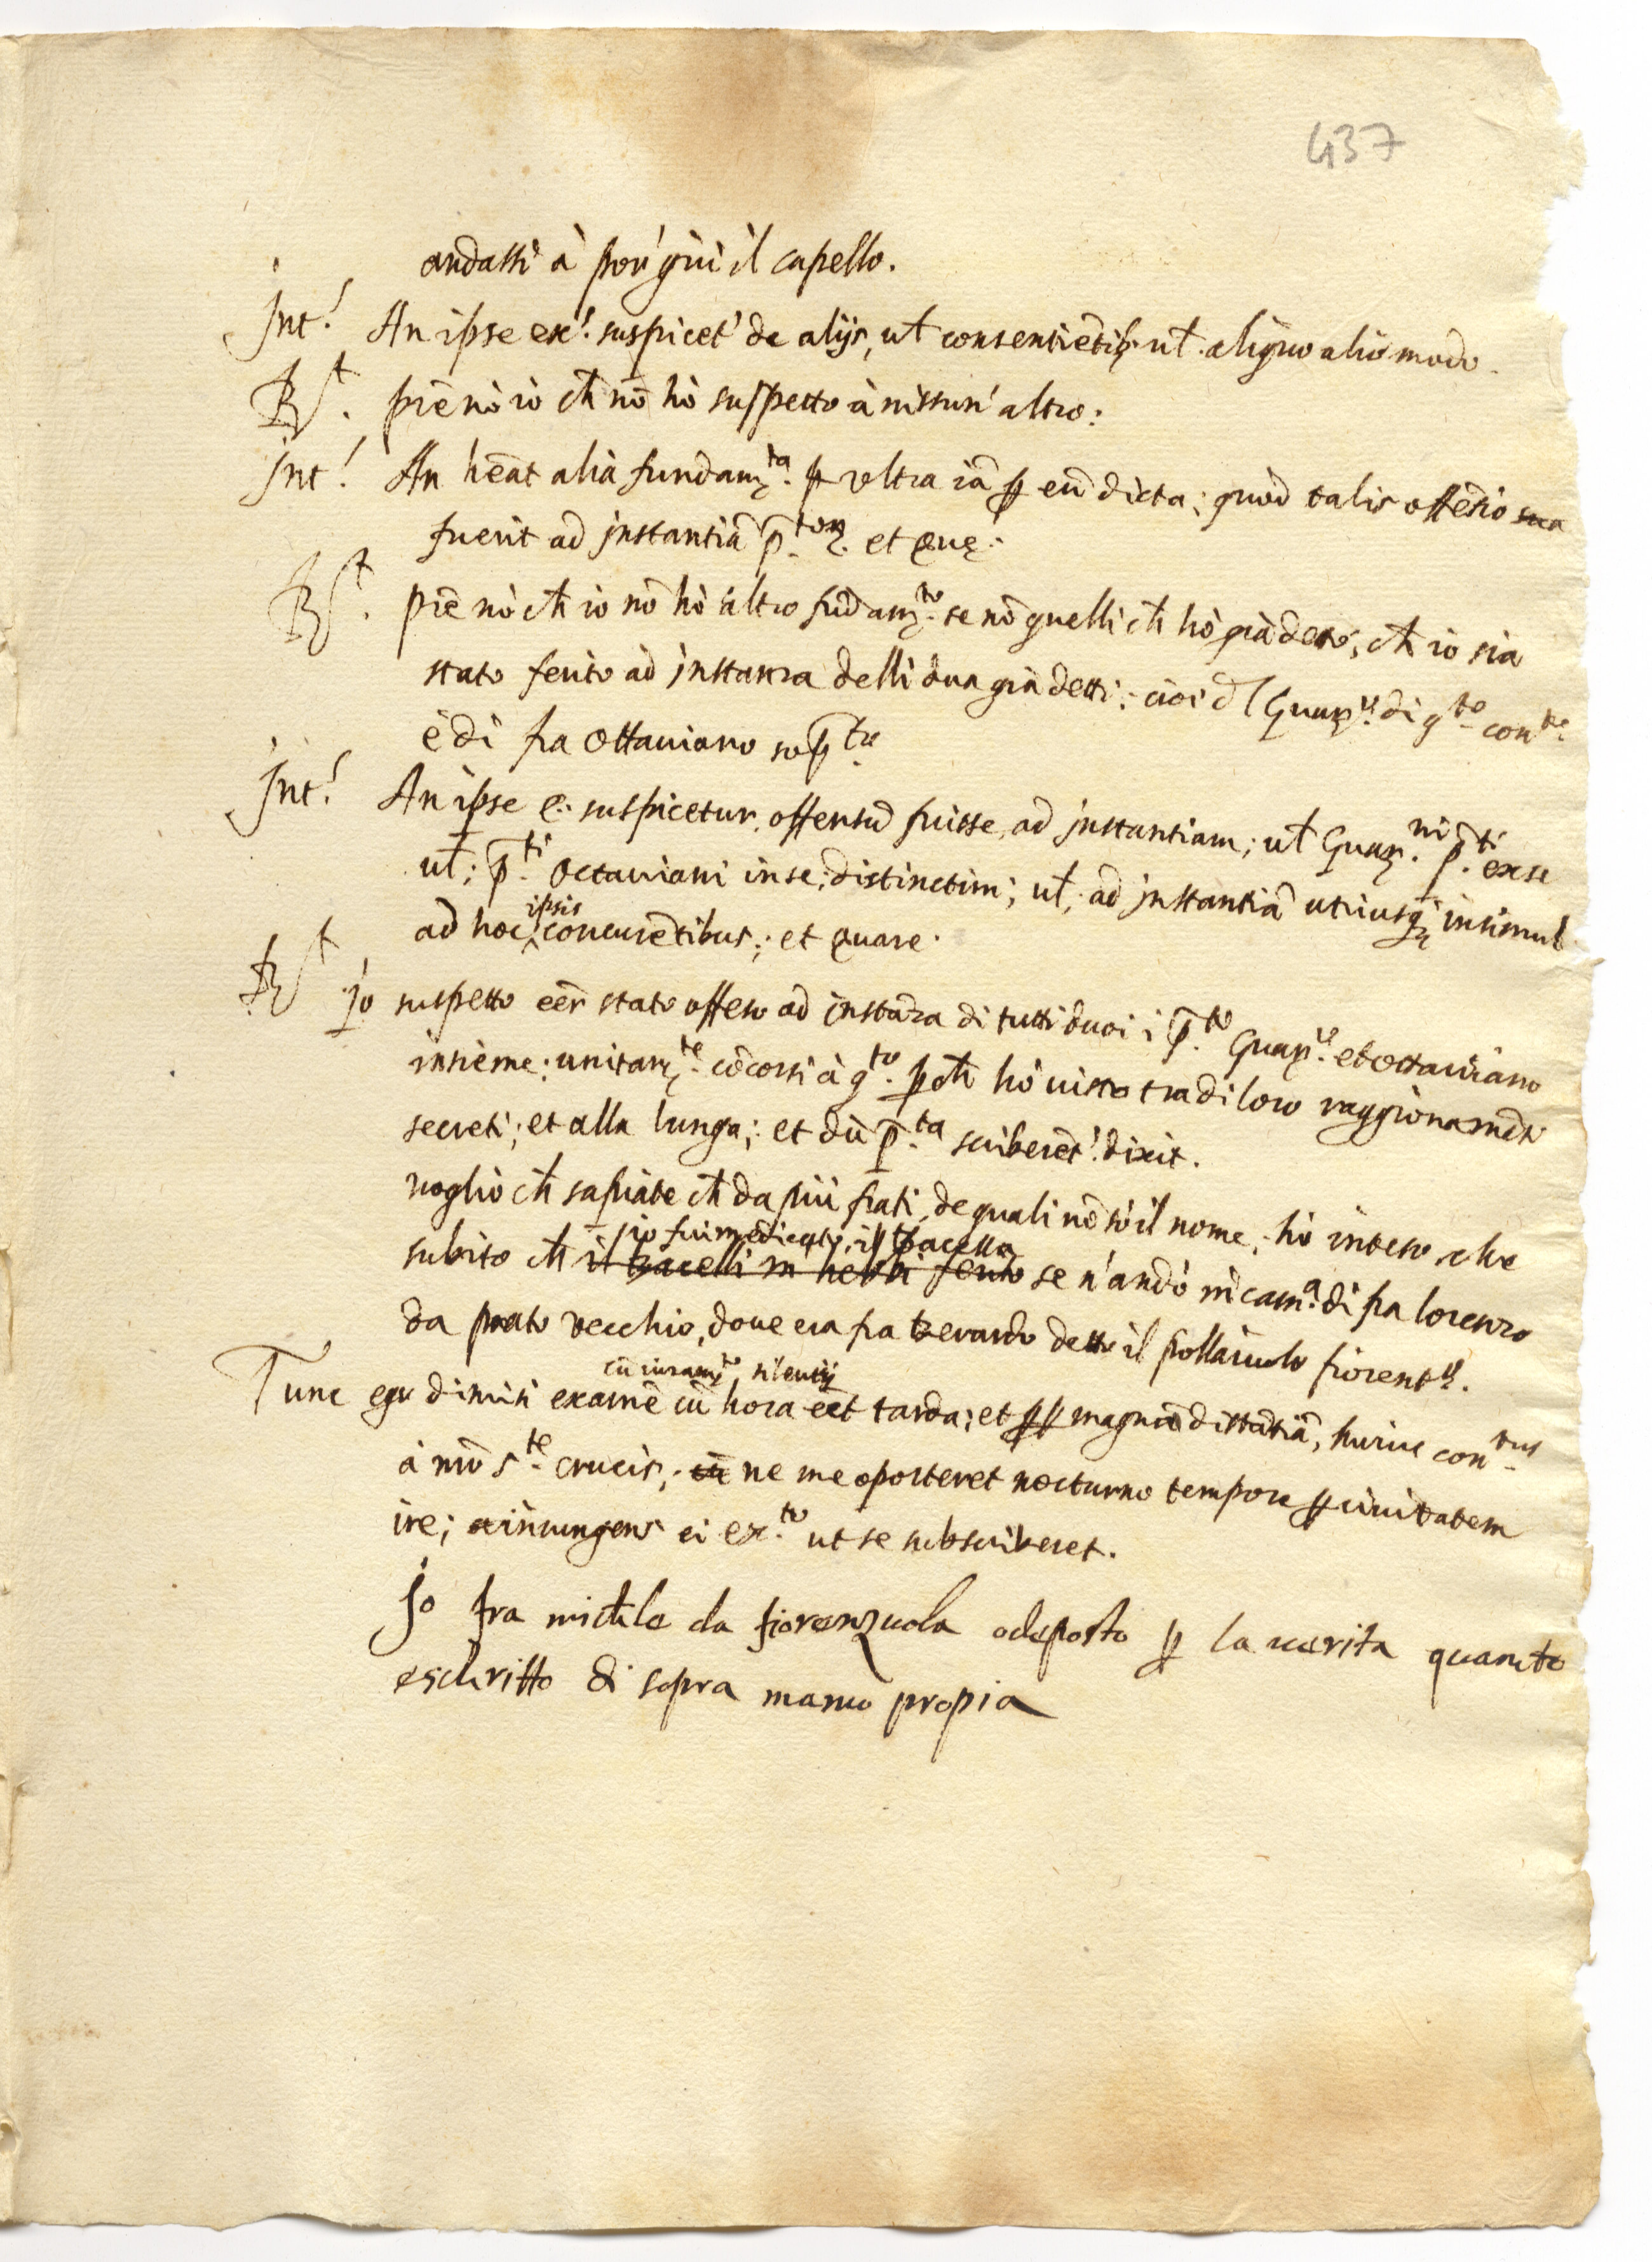 437
andassi à por' giù il capello.
Int.' An ipse ex.' suspicet' de alijs, ut̃ consentiẽtib; ut̃ aliquo alio modo.
R.t prẽ nò io ch̃ nõ hò suspetto à nissun' altro:
Int.' An hẽat alia fundam.ta ꝑ ultra iã ꝑ eũ dicta; quod talis offẽsio sua
fuerit ad instantiã p̃.torũ. et quę.
R.t prẽ nò ch̃ io nõ hò altro fũdam.to se nõ quelli ch̃ hò già detto, ch̃ io sia
stato ferito ad instanza delli dua già detti: cioè d'l Guar.no di q.to con.to
è di fra Ottaviano sop.to
Int.' An ipse e. suspicetur offensũ fuisse, ad instantiam; ut̃ Guar.ni p̃.ti ex se
ut̃; p̃.ti Octaviani in se; distinctim; ut̃; ad instantiã utriusq; insimul
ad hoc ipsis concurrẽtibus; et quare.
R.t Io suspetto eẽr stato offeso ad instãza di tutti duoi i p̃.ti Guar.no et Ottaviano
insieme; unitam.te cõcorsi à q.to ꝑch̃ hò visto tra di loro raggionamẽti
secreti; et alla lunga; et dũ p̃.ta scriberẽt.' dixit.
voglio ch̃ sapiate ch̃ da più frati, de quali nõ sò il nome, hò inteso che
io fui medicato, il Bacella
subito ch̃ il Bacelli m' hebbi ferito se n'andò in cam.a di fra lorenzo
da prato vecchio, dove era fra Berardo detto il pollaiuolo fiorent.o
cũ iuram.to silentij
Tunc ego dimisi examẽ cũ hora eẽt tarda; et ꝓꝑ magnã distãtiã, huius con.tus
à mõ S.te crucis; ne me oporteret nocturno tempore ꝑ civitatem
ire; iniungens ei ex.to ut se subscriberet.
Io fra michele da fiorenzuola o deposto ꝑ la verita quanto
eschritto di sopra mano propia